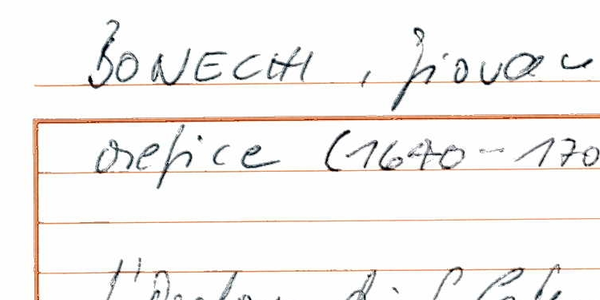 BONECHI, Giovan
orefice (1640-170
di S.